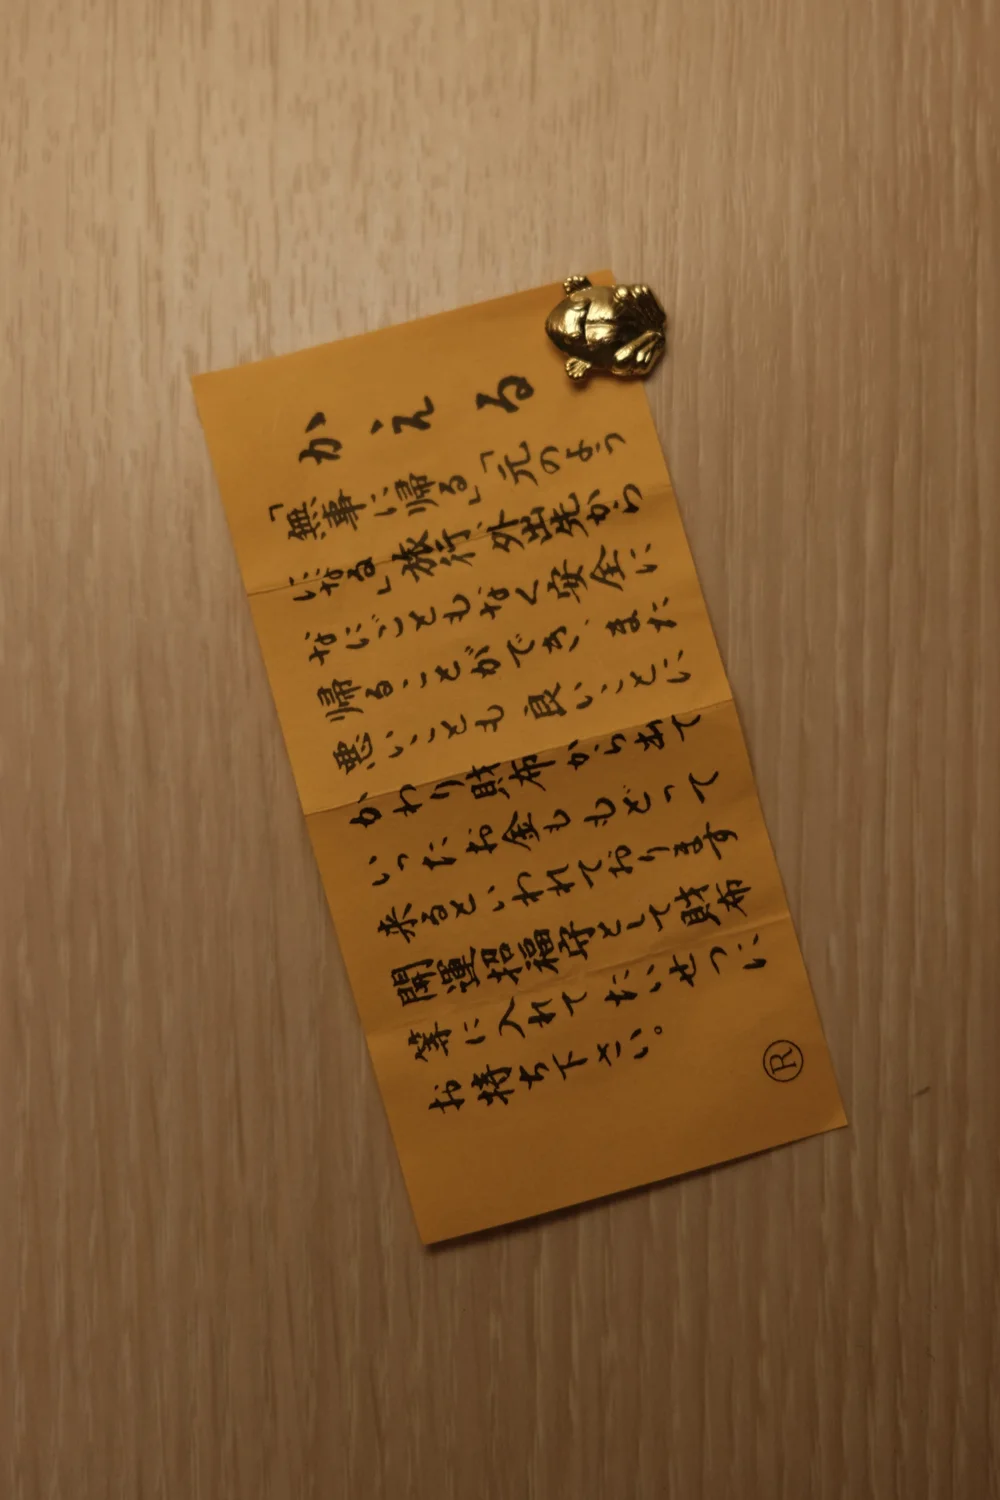 かえる
「無事に帰る」「元のよう
になる」旅行、外出先から
なにごともなく安全に
帰ることができ、また
悪いことも良いことに
かわり財布から出て
いったお金ももどって
来るといわれております
開運招福守として財布
等に入れてたいせつに
お持ち下さい。
Ⓡ